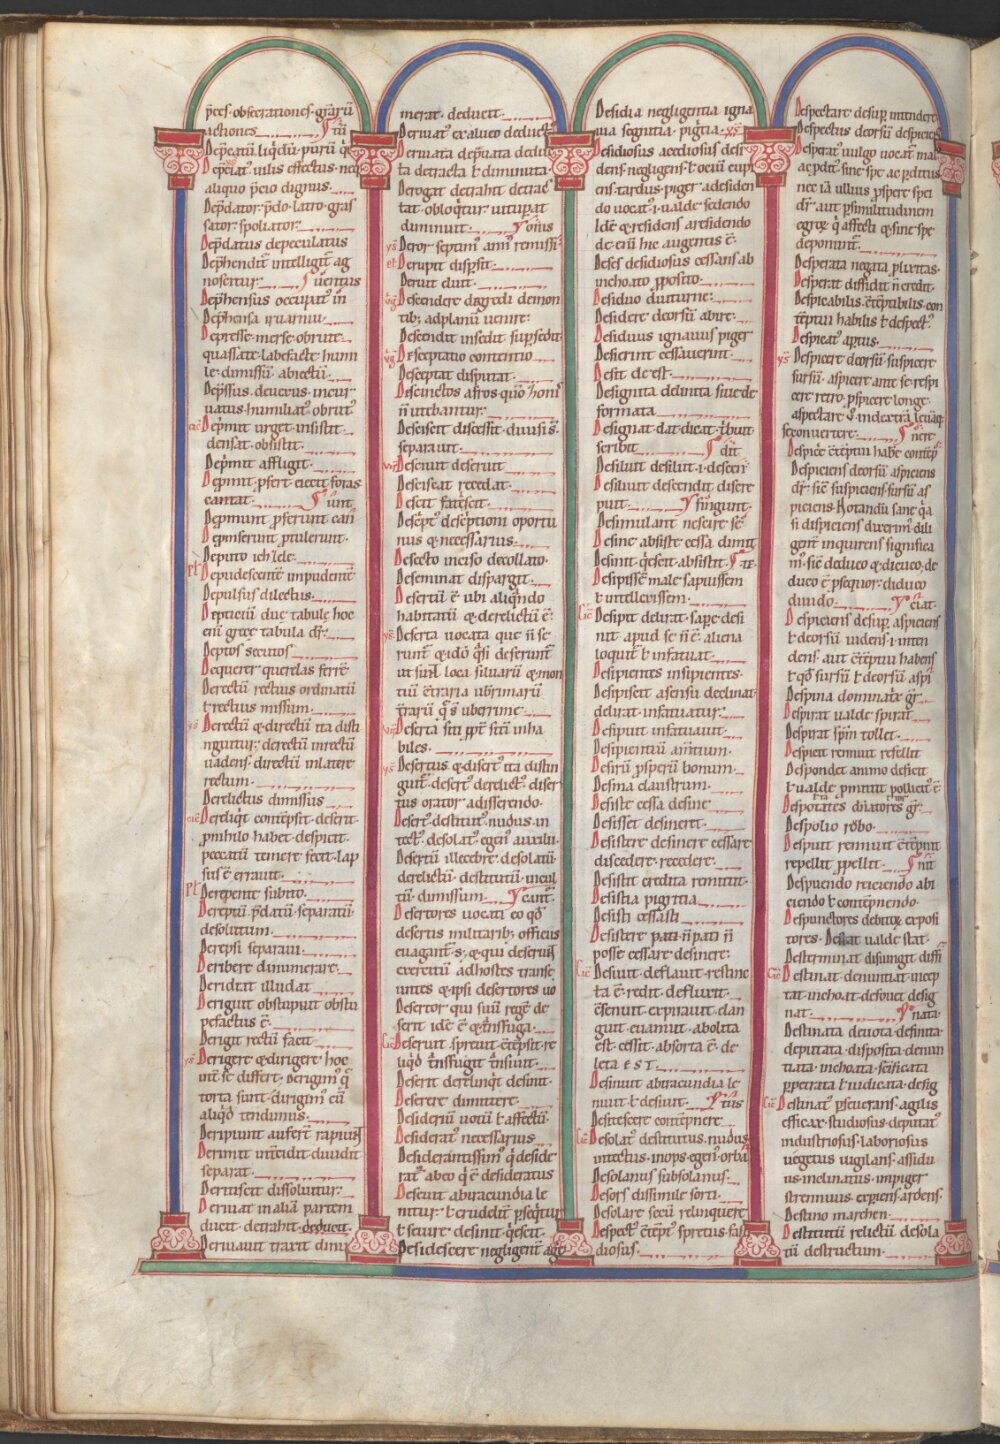 p̄ces· obsecrationes· grarū
actiones
Dep̄catū· liq̄dū· purū
Depeiat᷒ uilis effectus· neq
aliquo p̄cio dignus
Dep̄dator· p̄do· latro· gras
sator· spoliator
Dep̄datus depeculatus
Dep̄hendit᷒ intelligit᷒ ag
noscitur
Dep̄hensus occupat᷒
Dep̄hensa
Depresse· merse· obrute
quassate· labefacte· humi
le· dimissū· abiectū
Dep̄ssus· deuexus· incur
uatus· humiliat᷒ obrut᷒
Dep̄mit urget· insistit
densat· obsistit
Dep̄mit affligit
Depromit· p̄fert· eicit foras
cantat
Depmunt p̄ferunt· can
Depmserunt ptulerunt
Deputo
Depudescent impudent
Depulsus deiectus
Depticiū due tabule hoc
eni grece tabula dr
Deptos secutos
Dequerer querelas ferre
Derectū rectius ordinatū
ł rectius missum
Derectū & directū ita disti
nguitur· derectū inrectū
uadens· directū in latere
rectum
Derelictus dimissus
Dereliq̄t contēpsit· deserit
p nihilo habet· despicit
peccatū temere fecit· lap
sus ē· errauit
Derepente subito
Dereptū p̄datū· separatū
desolutum
Derepsi separaui
Deribere dinumerare
Deridat illudat
Deriguit obstupuit obstu
pefactus ē
Derigit rectū facit
Derigere & dirigere hoc
int se differt· derigim᷒ q̄
torta sunt· dirigim᷒ cū
aliq̄d tendimus
Deripiunt auferunt rapiunt
Derimit intercidit diuidit
separat
Deritescit dissoluitur
Deriuat in aliā partem
ducit· detrahit· deducit
Deriuauit traxit dimi
merat· deduxit
Deriuat᷒ ex alueo deduct᷒
Deriuata dep̄uata dedu
ta detracta ł diminuta
Derogat detrahit detrac
tat· obloq̄tur· uitupat
diminuit
Deror septim᷒ anni remissi
Derupit dispsit
Deruit duit
Descendere digredi de mon
tib; ad planū uenire
Descendit insedit supsedit
Desceptatio contentio
Desceptat disputat
Descinctos afros· quō zonis
n̄ utebantur
Desciscit discessit· diuisi s
separauit
Desciuit deseruit
Desciscat recedat
Descit fatescit
Descept᷒ descēptioni oportu
nus & necessarius
Desecto inciso decollato
Deseminat dispargit
Desertū ē ubi aliq̄ndo
habitatū & derelictū ē
Deserta uocata que n̄ se
runt & ido q̄si deserunt
ut sunt loca siluarū & mon
tiū ētraria ubrimarū
trarū q̄ s uberime
Deserta siti ppt sitū inha
biles
Desertus & disert᷒ ita distin
guit desert᷒ derelict᷒ diser
tus orator· a disserendo
Desert᷒ destitut᷒ nudus· in
tect᷒ desolat᷒ egen᷒ auxilii
Desertū illecebre· desolatū
derelictū destitutū· incul
tū· dimissum
Desertores uocati eo q̄d
desertis militarib; officiis
euagant s· & qui deserunt
exercitū ad hostes transe
untes & ipsi desertores uo
Desertor qui suū regē de
serit idē ē & transfuga
Deseruit spreuit ētēpsit· re
liq̄d transfugit transiuit
Deserit derelinq̄t desinit
Deserere dimittere
Desideriū uotū ł affectū
Desiderat᷒ necessarius
Desiderantissim᷒ q̄ deside
rat ab eo q̄ ē desideratus
Deseuit ab iracundia le
nitur· ł crudelit persequitur
ł seuire· desinit q̄escit
Desidescere negligent age
Desidia negligentia igna
uia segnitia· pigritia
Desidiosus accidiosus desi
dens· negligens· ł ociū cupi
ens· tardus· piger· a desiden
do uocat᷒ i· ualde sedendo
Idē & residens a residendo
de· enī hic augentis ē
Deses desidiosus cessans ab
inchoato pposito
Desiduo diuturne
Desidere deorsū abire
Desiduus ignauus piger
Desierint cessauerint
Desit de est
Designita delinita siue de
formata
Designat dat dicat· tribuit
scribit
Desiluit desiliit· i· descen
Desiluit descendit disere
puit
Desimulant nescire se
Desine absiste cessa dimit
Desinit q̄escit· absistit
Desipisse male sapuissem
ł intellexissem
Desipit delirat· sape· desi
nit· apud se n̄ ē· aliena
loquit ł infatuat
Desipientes insipientes
Desipiscit a sensu declinat
delirat· infatuatur
Desipuit infatuauit
Desipientiū amtium
Desirū psperū bonum
Desma claustrum
Desiste cessa desine
Desisset desineret
Desistere desinere cessare
discedere· recedere
Desistit credita remittit
Desistia pigritia
Desisti cessasti
Desistere pati· n̄ pati n̄
posse cessare desinere
Desiuit· deflauit· restinc
ta ē· redit· defluxit
ēsenuit· expirauit· elan
guit· euanuit· abolita
est· cessit· absorta ē· de
leta e s t
Desinuit ab iracundia le
niuit ł desiuit
Desitescere contēpnere
Desolat᷒ destitutus· nudus
intectus· inops· egen᷒ orba
Desolanus subsolanus
Desors dissimile sorti
Desolare seclū relinquere
Despect᷒ ētēpt᷒ spretus· fas
diosus
Despectare· desup intendere
Despectus deorsū despiciens
Desperat᷒ uulgo uocat mal᷒
ac pdit᷒ sine spe· ac pditus
nec iā ullius pspere spei
dr· aut p similitudinem
egroz q̄ affecti & sine spe
deponunt
Desperata negata pluritas
Desperat diffidit n̄ credit
Despicabilis· ētēptibilis· con
tēptui habilis ł despect᷒
Despicat᷒ aptus
Despicere deorsū· suspicere
sursū· aspicere ante se· respi
cere retro· pspicere longe
aspectare
se conuertere
Despice ētēptui habe contēp
Despiciens deorsū aspiciens
dr· sic suspiciens· sursū as
piciens· Notandū sane q̄a
si dispiciens dixerim᷒ dili
gent inquirens significa
m᷒ sic deduco & diduco· de
duco ē psequor· diduco
diuido
Despiciens desup aspiciens
ł deorsū uidens· i· inten
dens· aut ētēptui habens
ł q̄d sursū ł deorsū aspi
Despina dominatrix gr
Despirat ualde spirat
Despirat spm tollet
Despicit rennuit refellit
Despondet animo deficit
ł ualde pmittit pollicit᷒ ē
Despotates dnatores gr
Despolio robo
Despuit rennuit ētēpnit
repellit ppellit
Despuendo reiciendo abi
ciendo ł contēpnendo
Despunctores debitoz exposi
tores· Destat ualde stat
Desterminat disiungit diffi
Destinat· denuntiat· incep
tat· inchoat· defouet desig
nat
Destinata deuota· definita
deputata· disposita· denun
tiata· inchoata· scificata
ppetrata ł iudicata· desig
Destinat᷒ pseuerans· agilis
efficax· studiosus· deputat᷒
industriosus· laboriosus
uegetus uigilans· assidu
us· inclinatus· impiger
strennuus· expiens· ardens
Destino marchen
Destitutū relictū desola
tū destructum